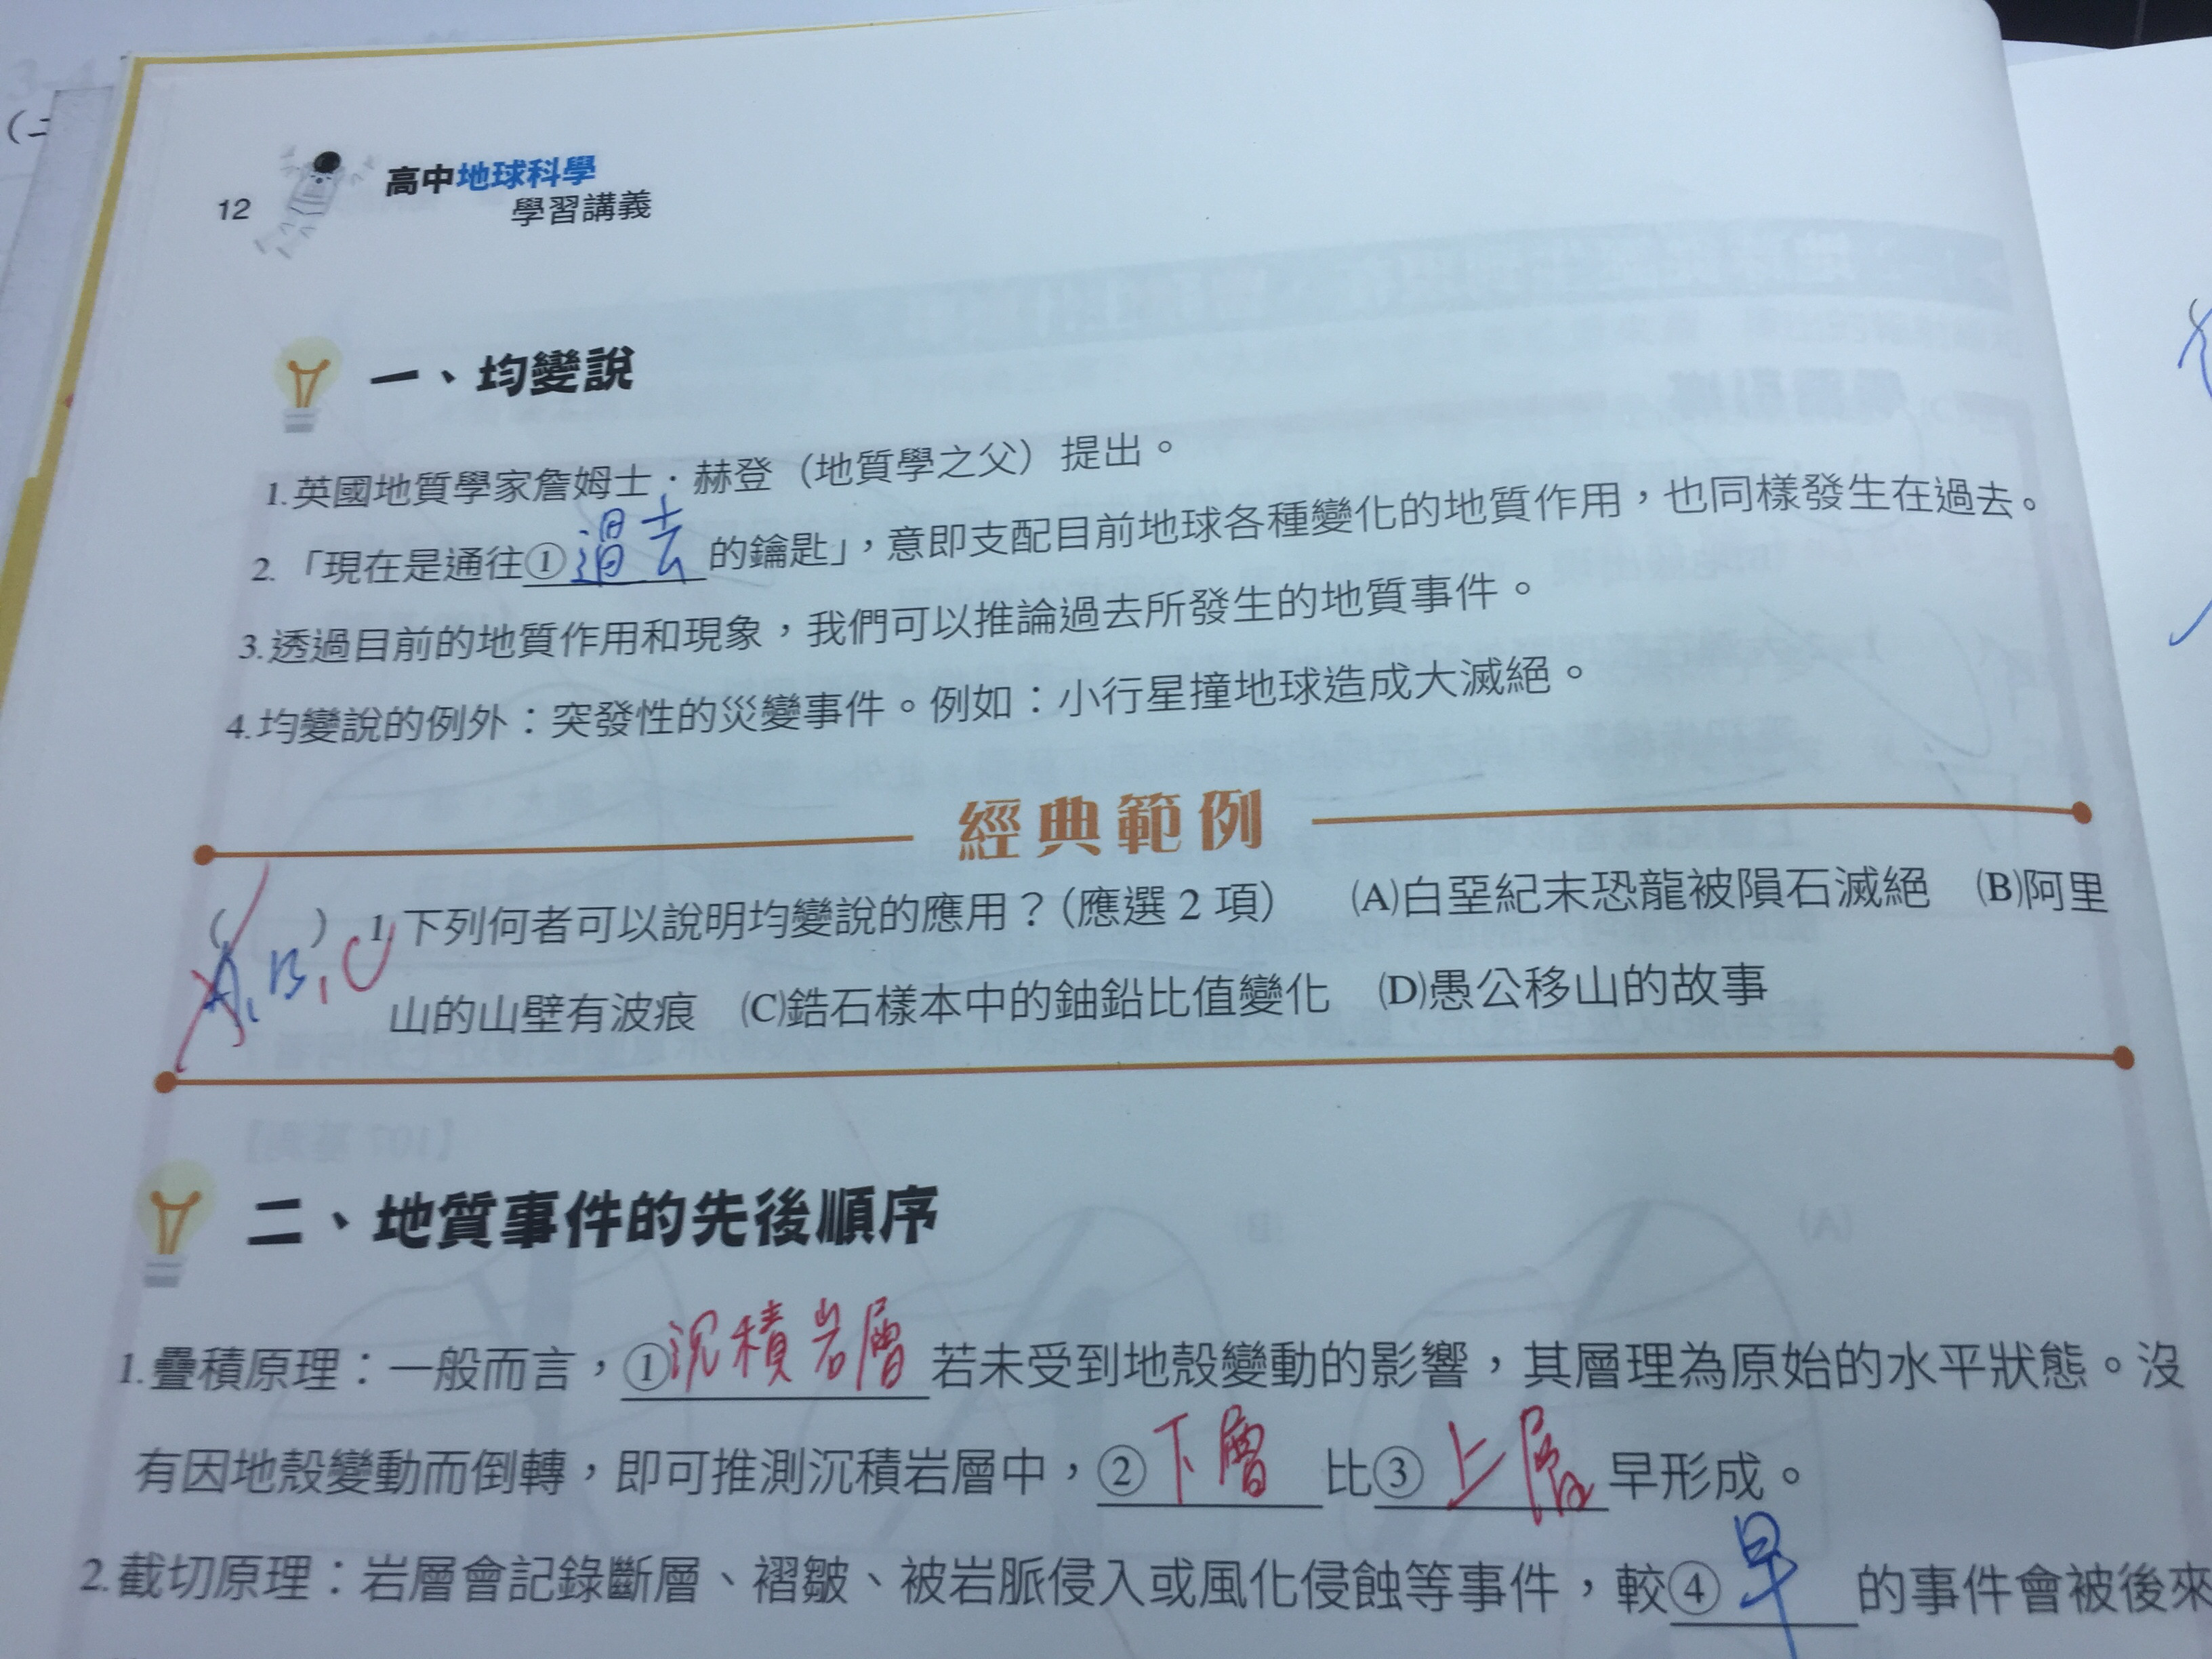 12
高中地球科學
學習講義
一、均變說
1.英國地質學家詹姆士·赫登（地質學之父）提出。
2.「現在是通往①過去的鑰匙」，意即支配目前地球各種變化的地質作用，也同樣發生在過去。
3.透過目前的地質作用和現象，我們可以推論過去所發生的地質事件。
4.均變說的例外：突發性的災變事件。例如：小行星撞地球造成大滅絕。
經典範例
(　) 1.下列何者可以說明均變說的應用？（應選 2 項）　(A)白堊紀末恐龍被隕石滅絕　(B)阿里
A, B, C
山的山壁有波痕　(C)鋯石樣本中的鈾鉛比值變化　(D)愚公移山的故事
二、地質事件的先後順序
1.疊積原理：一般而言，①沉積岩層若未受到地殼變動的影響，其層理為原始的水平狀態。沒
有因地殼變動而倒轉，即可推測沉積岩層中，②下層比③上層早形成。
2.截切原理：岩層會記錄斷層、褶皺、被岩脈侵入或風化侵蝕等事件，較④早的事件會被後來